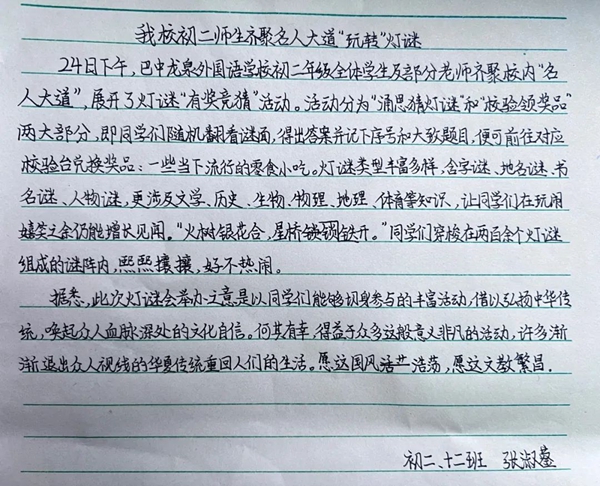 我校初二师生齐聚名人大道“玩转”灯谜
24日下午，巴中龙泉外国语学校初二年级全体学生及部分老师齐聚校内“名
人大道”，展开了灯谜“有奖竞猜”活动。活动分为“涌思猜灯谜”和“校验领奖品”
两大部分，即同学们随机翻看谜面，得出答案并记下序号和大致题目，便可前往对应
校验台兑换奖品：一些当下流行的零食小吃。灯谜类型丰富多样，含字谜、地名谜、书
名谜、人物谜，更涉及文学、历史、生物、物理、地理、体育等知识，让同学们在玩闹
嬉笑之余仍能增长见闻。“火树银花合，星桥锁铁开。”同学们穿梭在两百余个灯谜
组成的谜阵内，熙熙攘攘，好不热闹。
据悉，此次灯谜会举办之意是以同学们能够切身参与的丰富活动，借以弘扬中华传
统，唤起众人血脉深处的文化自信。何其有幸，得益于众多这般意义非凡的活动，许多渐
渐退出众人视线的华夏传统重回人们的生活。愿这国风浩荡，愿这文教繁昌.
初二、十二班 张淑